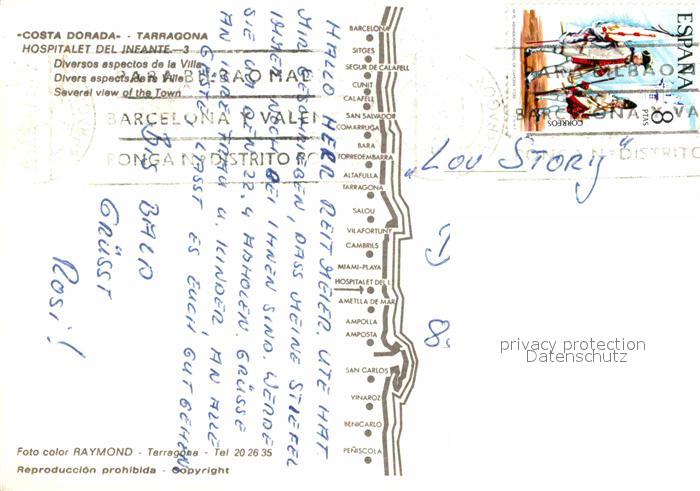 "COSTA DORADA" - TARRAGONA
HOSPITALET DEL INFANTE.—3
Diversos aspectos de la Villa
Divers aspects de la Ville
Several view of the Town
PARA BILBAO
BARCELONA Y VALEN
PONGA Nº DISTRITO
HALLO HERR REITMEIER. UTE HAT
MIR GESCHRIEBEN, DASS MEINE STIEFEL
IMMER NOCH BEI IHNEN SIND. WERDE
SIE UM DEN 22.4 ABHOLEN. GRÜSSE
AN IHRE FRAU U. KINDER. AN ALLE
GÄSTE. LASST ES EUCH GUT GEHEN
BIS BALD
GRÜSST
ROSI!
BARCELONA
SITGES
SEGUR DE CALAFELL
CUNIT
CALAFELL
SAN SALVADOR
COMARRUGA
BARA
TORREDEMBARRA
ALTAFULLA
TARRAGONA
SALOU
VILAFORTUNY
CAMBRILS
MIAMI-PLAYA
HOSPITALET DEL I.
AMETLLA DE MAR
AMPOLLA
AMPOSTA
SAN CARLOS
VINAROZ
BENICARLO
PEÑISCOLA
Foto color RAYMOND - Tarragona - Tel 20 26 35
Reproducción prohibida - Copyright
ESPAÑA
8
PTAS
CORREOS
PARA BILBAO
BARCELONA Y VALEN
PONGA Nº DISTRITO
"LOV STORY"
8
privacy protection
Datenschutz